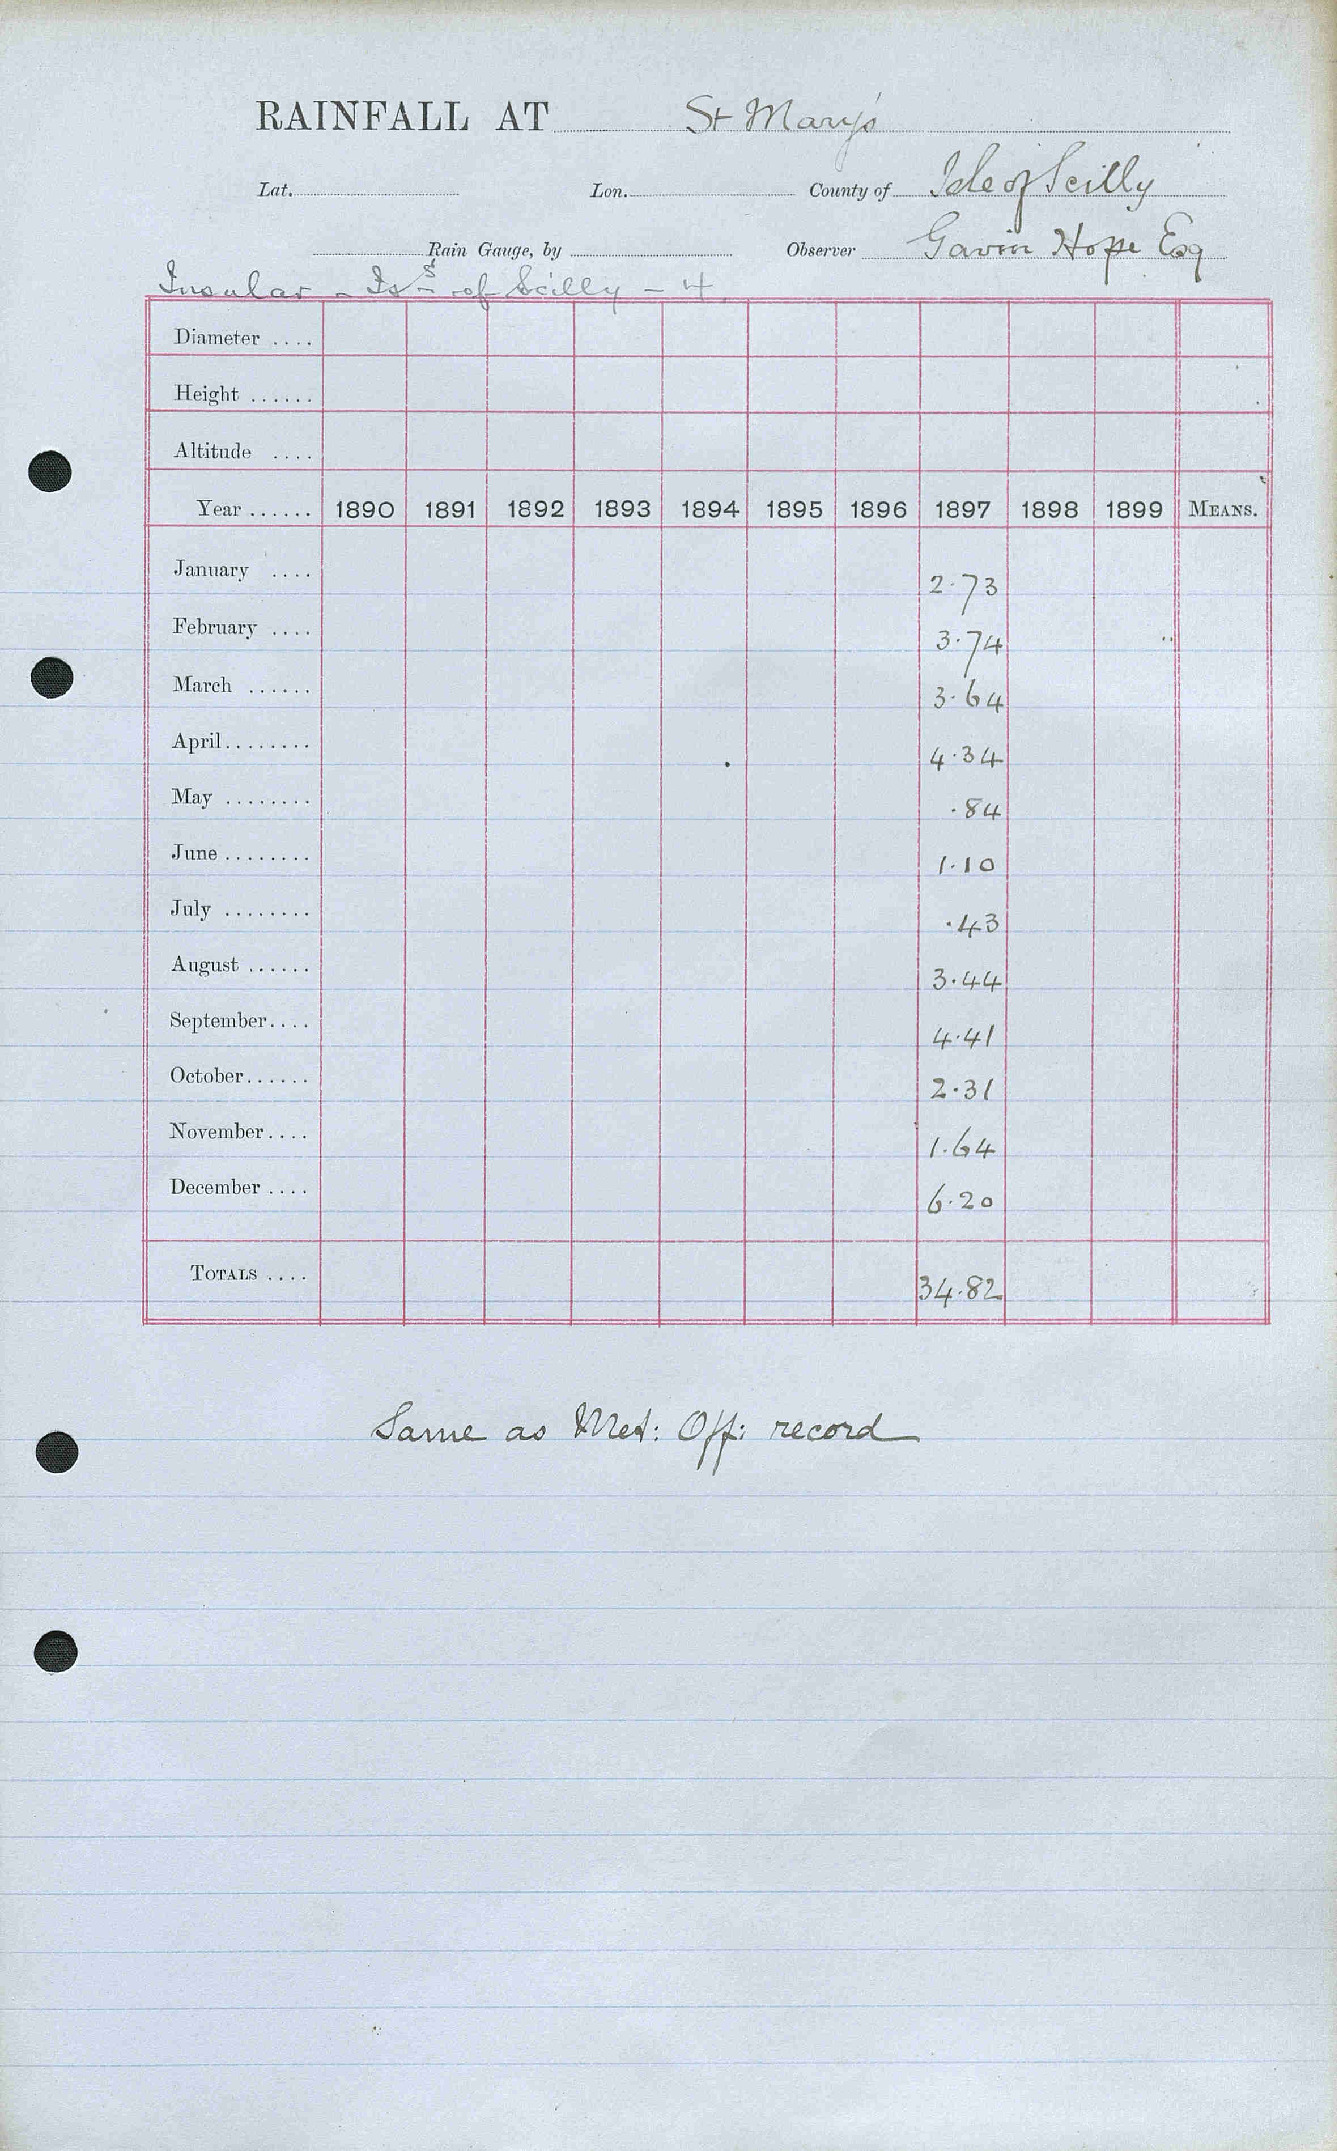 RAINFALL AT St Mary's
Lat. Lon. County of Isle of Scilly
Rain Gauge, by Observer Gavin Hope Esq
Insular - Is^s of Scilly - 4
Diameter ....
Height ......
Altitude ....
Year ...... 1890 1891 1892 1893 1894 1895 1896 1897 1898 1899 MEANS.
January .... 2.73
February .... 3.74
March ...... 3.64
April........ 4.34
May ........ .84
June ........ 1.10
July ........ .43
August ...... 3.44
September.... 4.41
October...... 2.31
November.... 1.64
December .... 6.20
TOTALS .... 34.82
Same as Met: Off: record